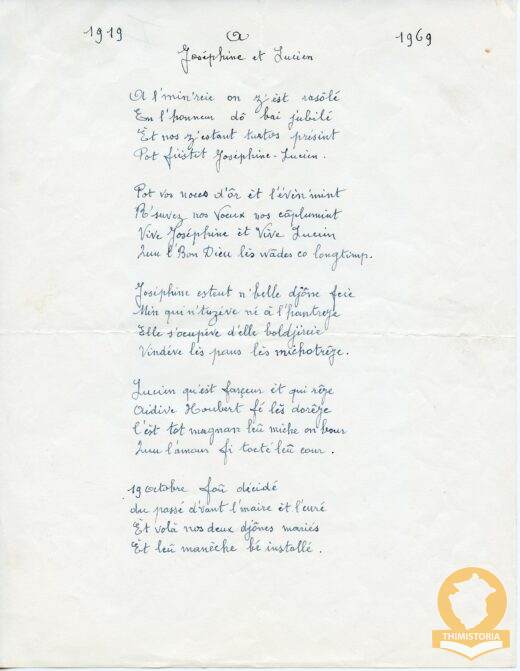 1919 A 1969
Joséphine et Lucien
A l'min'reie on z'est rasôlé
En l'honneur dô bai jubilé
Et nos z'estant turtos présint
Pot fiéstit Joséphine-Lucien.
Pot vos noces d'ôr èt l'évin'mint
R'suvez nos voeux nos câplumint
Vive Joséphine èt Vive Lucien
Quu l'Bon Dieu lès wâdes co longtimp.
Joséphine esteut n'belle djône feie
Min qui n'tuzéve né à l'hantreye
Elle s'ocupéve d'elle boldjireie
Vindéve lès pans lès michotrêye.
Lucien qu'est farceur èt qui rêye
Aidive Houbert fé lès dorêye
C'èst tot magnan leû miche on bour
Quu l'amour fi tocté leû cour.
19 octobre foû décidé
du passé d'vant l'maire èt l'curé
Èt volà nos deux djônes mariés
Èt leû manèche bé installé.
THIMISTORIA